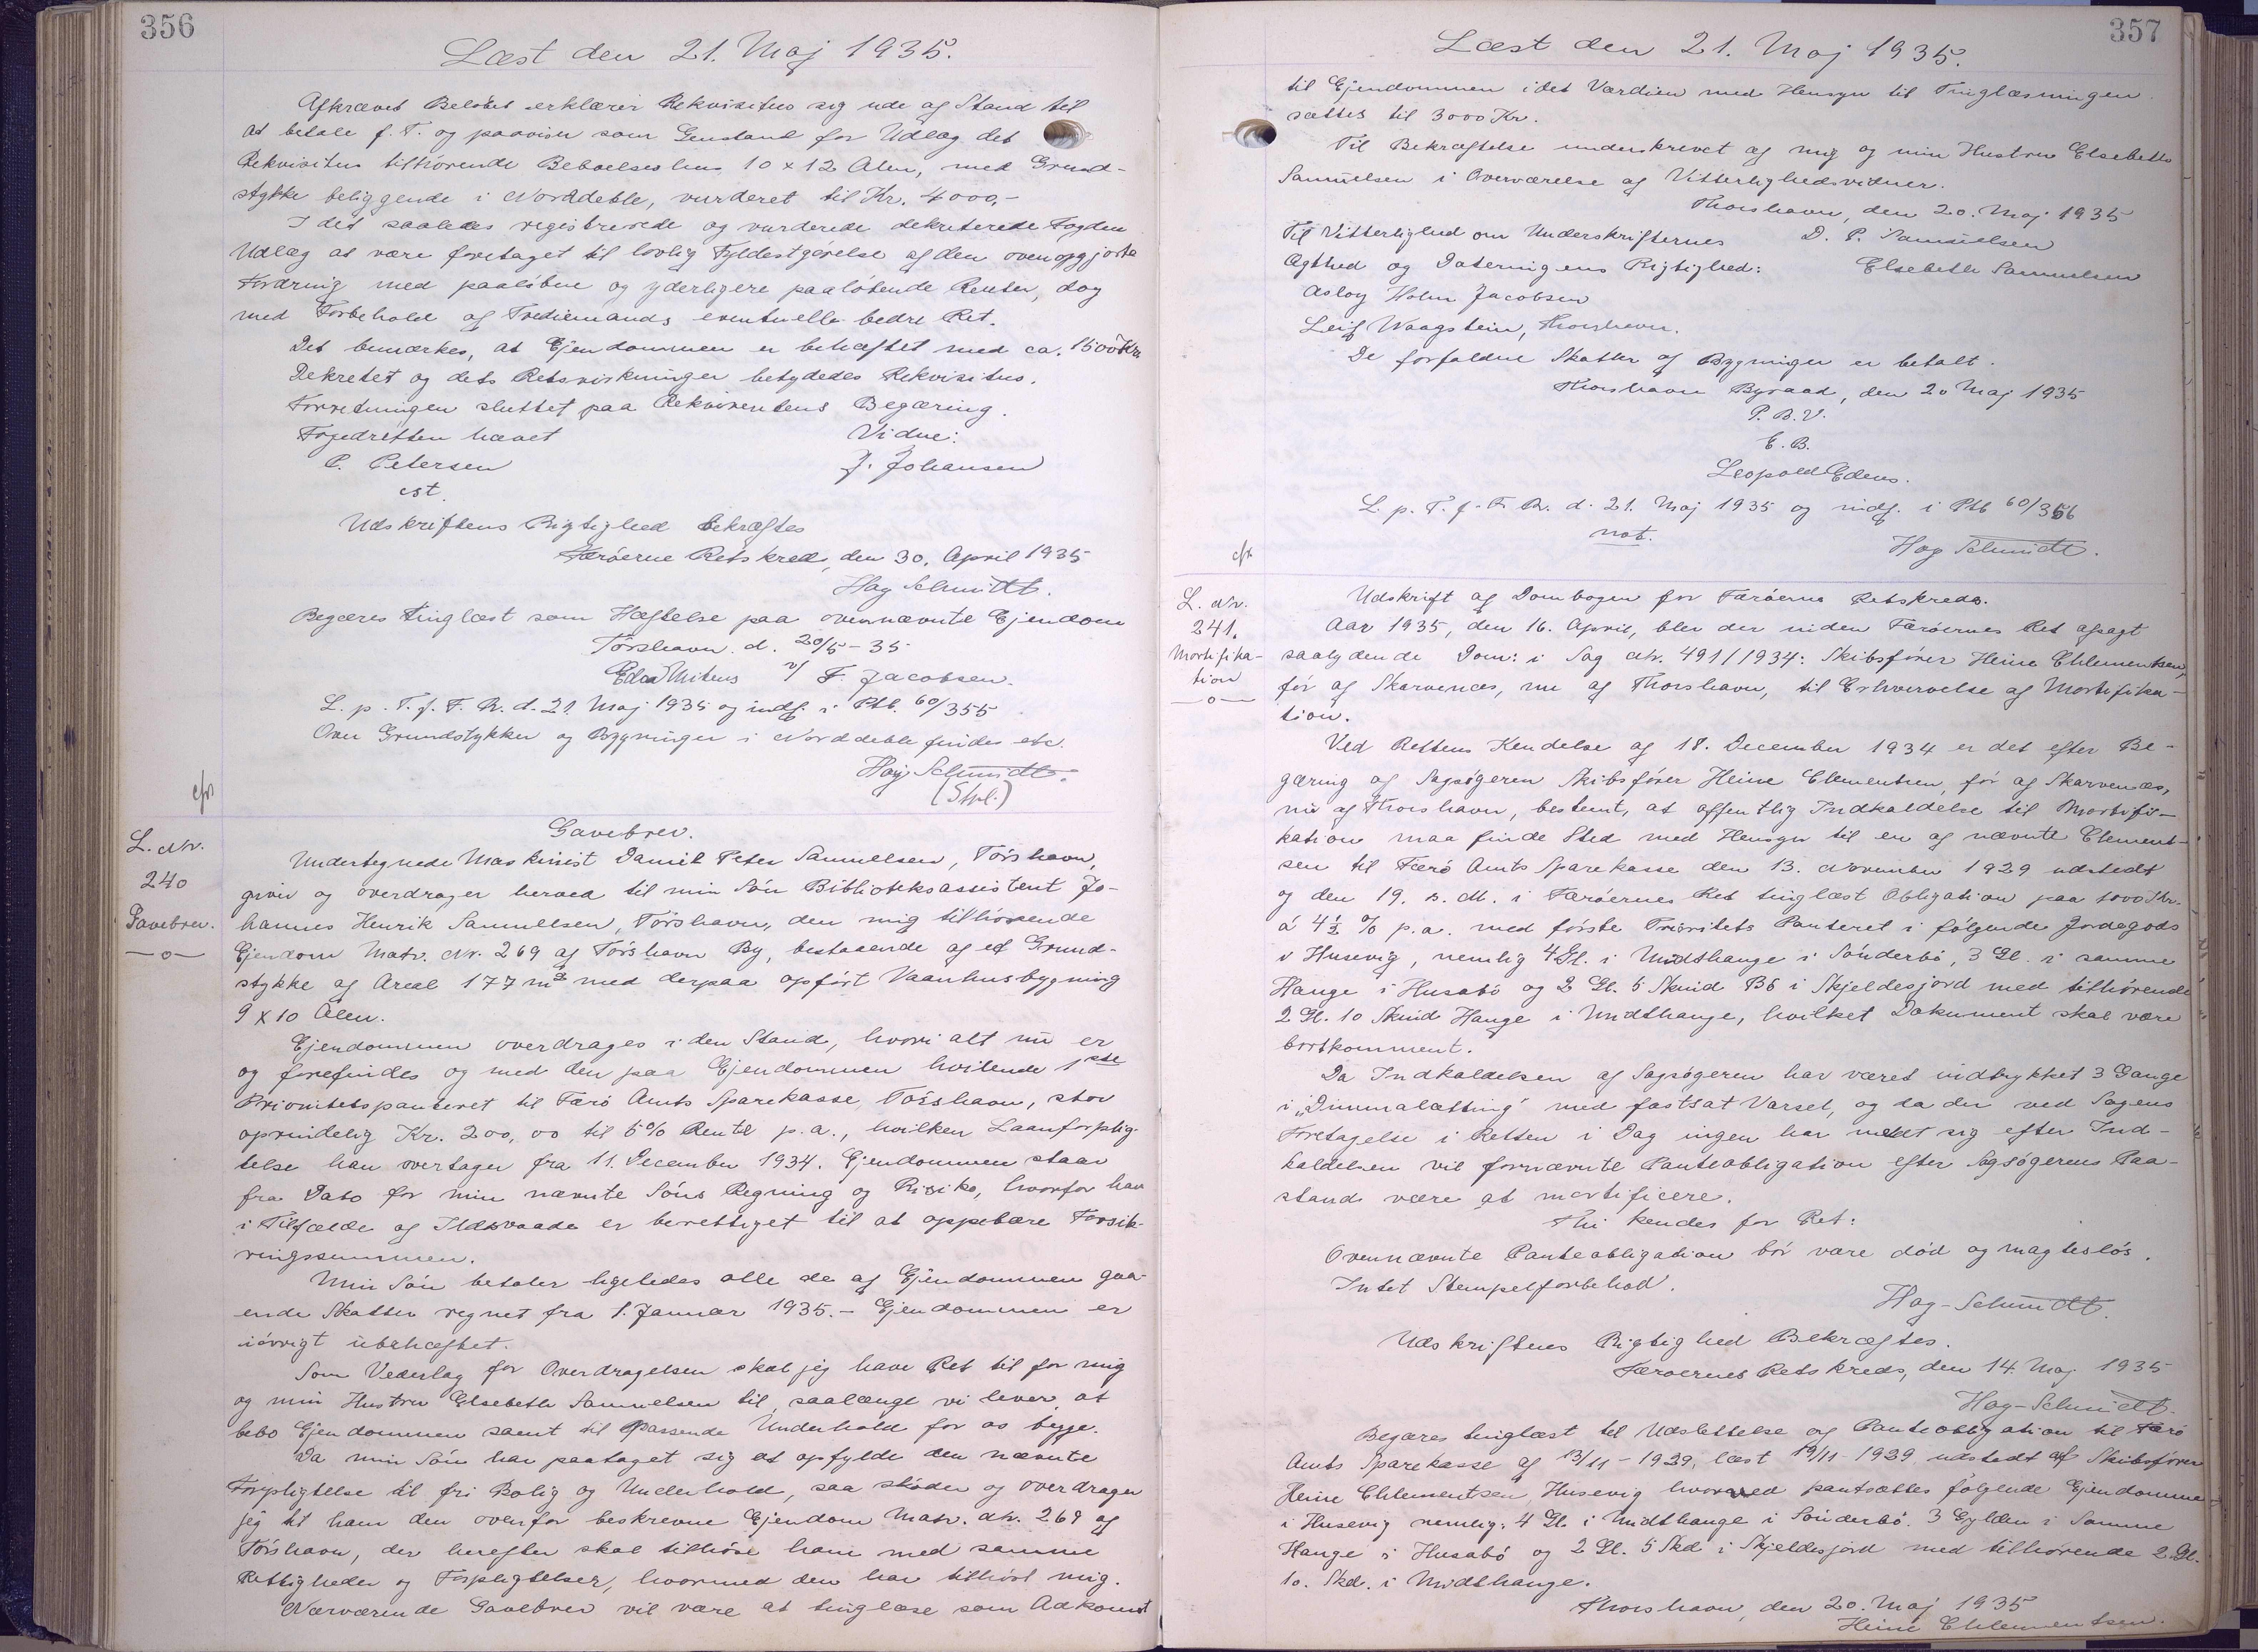 356
Læst den 21. Maj 1935.
Afkrævet Beløbet erklærer Rekvisitus sig ude af Stand til
at betale p. T. og paaviser som Genstand for Udlæg det
Rekvisitus tilhørende Beboelseshus 10 x 12 Alen, med Grund-
stykke beliggende i Norddeble, vurderet til Kr. 4000,-
I det saaledes registrerede og vurderede dekreterede Fogden
Udlæg at være foretaget til lovlig Fyldestgørelse af den ovenopgjorte
Fordring med paaløbne og yderligere paaløbende Renter, dog
med Forbehold af Trediemands eventuelle bedre Ret.
Det bemærkes, at Ejendommen er behæftet med ca. 1500 Kr.
Dekretet og dets Retsvirkninger betydedes Rekvisitus.
Forretningen sluttet paa Rekvirentens Begæring.
Fogedretten hævet Vidne:
P. Petersen J. Johansen
cst.
Udskriftens Rigtighed bekræftes
Færøerne Retskreds, den 30. April 1935
Hag Schmidt.
Begæres tinglæst som Hæftelse paa ovennævnte Ejendom
Tórshavn. d. 20/5 - 35
Edw Mitens v/ F. Jacobsen.
L. p. T. f. F. R. d. 21. Maj 1935 og indf. i Ptb. 60/355
Over Grundstykker og Bygninger i Norddeble findes etc.
Hag Schmidt.
(Stpl.)
cfr
L. Nr.
240
Gavebrev.
—o—
Gavebrev.
Undertegnede Maskinist Daniel Peter Samuelsen, Tórshavn,
giver og overdrager herved til min Són Biblioteksassistent Jo-
hannes Henrik Samuelsen, Tórshavn, den mig tilhørende
Ejendom Matr. Nr. 269 af Tórshavn By, bestaaende af et Grund-
stykke af Areal 177 m² med derpaa opført Vaanhusbygning
9 x 10 Alen.
Ejendommen overdrages i den Stand, hvori alt nu er
og forefindes og med den paa Ejendommen hvilende 1ste
Prioritetspanteret til Færø Amts Sparekasse, Tórshavn, stor
oprindelig Kr. 200,00 til 5% Rente p.a., hvilken Laanforplig-
telse han overtager fra 11. December 1934. Ejendommen staar
fra Dato for min nævnte Søns Regning og Risiko, hvorfor han
i Tilfælde af Ildsvaade er berettiget til at oppebære Forsik-
ringssummen.
Min Søn betaler ligeledes alle de af Ejendommen gaa-
ende Skatter regnet fra 1. Januar 1935. - Ejendommen er
iøvrigt ubehæftet.
Som Vederlag for Overdragelsen skal jeg have Ret til for mig
og min Hustru Elsebeth Samuelsen til, saalænge vi lever, at
bebo Ejendommen samt til passende Underhold for os begge.
Da min Søn har paataget sig at opfylde den nævnte
Forpligtelse til fri Bolig og Underhold, saa skøder og overdrager
jeg til ham den ovenfor beskrevne Ejendom Matr. Nr. 269 af
Tórshavn, der herefter skal tilhøre ham med samme
Rettigheder og Forpligtelser, hvormed den har tilhørt mig.
Nærværende Gavebrev vil være at tinglæse som Adkomst
357
Læst den 21. Maj 1935.
til Ejendommen idet Værdien med Hensyn til Tinglæsningen
sættes til 3000 Kr.
Til Bekræftelse underskrevet af mig og min Hustru Elsebeth
Samuelsen i Overværelse af Vitterlighedsvidner.
Thorshavn, den 20. Maj 1935
Til Vitterlighed om Underskrifternes D. P. Samuelsen
Ægthed og Dateringens Rigtighed: Elsebeth Samuelsen
Aslog Holm Jacobsen
Leif Waagstein, Thorshavn.
De forfaldne Skatter af Bygningen er betalt.
Thorshavn Byraad, den 20 Maj 1935
P. B. V.
E. B.
Leopold Edens.
L. p. T. f. F. R. d. 21. Maj 1935 og indf. i Ptb 60/356
not.
Hag Schmidt.
cfr
L. Nr.
241.
Mortifika-
tion
—o—
Udskrift af Dombogen for Færøerne Retskreds.
Aar 1935, den 16. April, blev der inden Færøernes Ret afsagt
saalydende Dom: i Sag Nr. 491/1934: Skibsfører Heine Chlementsen,
før af Skarvenæs, nu af Thorshavn, til Erhvervelse af Mortifika-
tion.
Ved Rettens Kendelse af 18. December 1934 er det efter Be-
gæring af Sagsøgeren Skibsfører Heine Clementsen, før af Skarvenæs,
nu af Thorshavn, bestemt, at offentlig Indkaldelse til Mortifi-
kation maa finde Sted med Hensyn til en af nævnte Clement-
sen til Færø Amts Sparekasse den 13. November 1929 udstedt
og den 19. s. M. i Færøernes Ret tinglæst Obligation paa 1000 Kr.
á 4½ % p.a. med første Prioritets Panteret i følgende Jordegods
i Husevig, nemlig 4 Gl. i Midthauge i Sønderbø, 3 Gl. i samme
Hauge i Husabø og 2 Gl. 5 Skind B6 i Skjeldesjord med tilhørende
2 Gl. 10 Skind Hauge i Midthauge, hvilket Dokument skal være
bortkomment.
Da Indkaldelsen af Sagsøgeren har været indtrykket 3 Gange
i „Dimmalætting" med fastsat Varsel, og da der ved Sagens
Foretagelse i Retten i Dag ingen har meldt sig efter Ind-
kaldelsen vil fornævnte Panteobligation efter Sagsøgerens Paa-
stand være at mortificere.
Thi kendes for Ret:
Ovennævnte Panteobligation bør være død og magtesløs.
Intet Stempelforbehold.
Hag-Schmidt.
Udskriftens Rigtighed Bekræftes.
Færøernes Retskreds, den 14. Maj 1935
Hag-Schmidt.
Begæres tinglæst til Udslettelse af Panteobligation til Færø
Amts Sparekasse af 13/11 - 1929, læst 19/11 - 1929 udstedt af Skibsfører
Heine Chlementsen, Husevig hvorved pantsættes følgende Ejendomme
i Husevig nemlig: 4 Gl. i Midthauge i Sønderbø. 3 Gylden i Samme
Hauge i Husabø og 2 Gl. 5 Skd. i Skjeldesjord med tilhørende 2 Gl.
10. Skd. i Midthauge.
Thorshavn, den 20. Maj 1935
Heine Chlementsen.